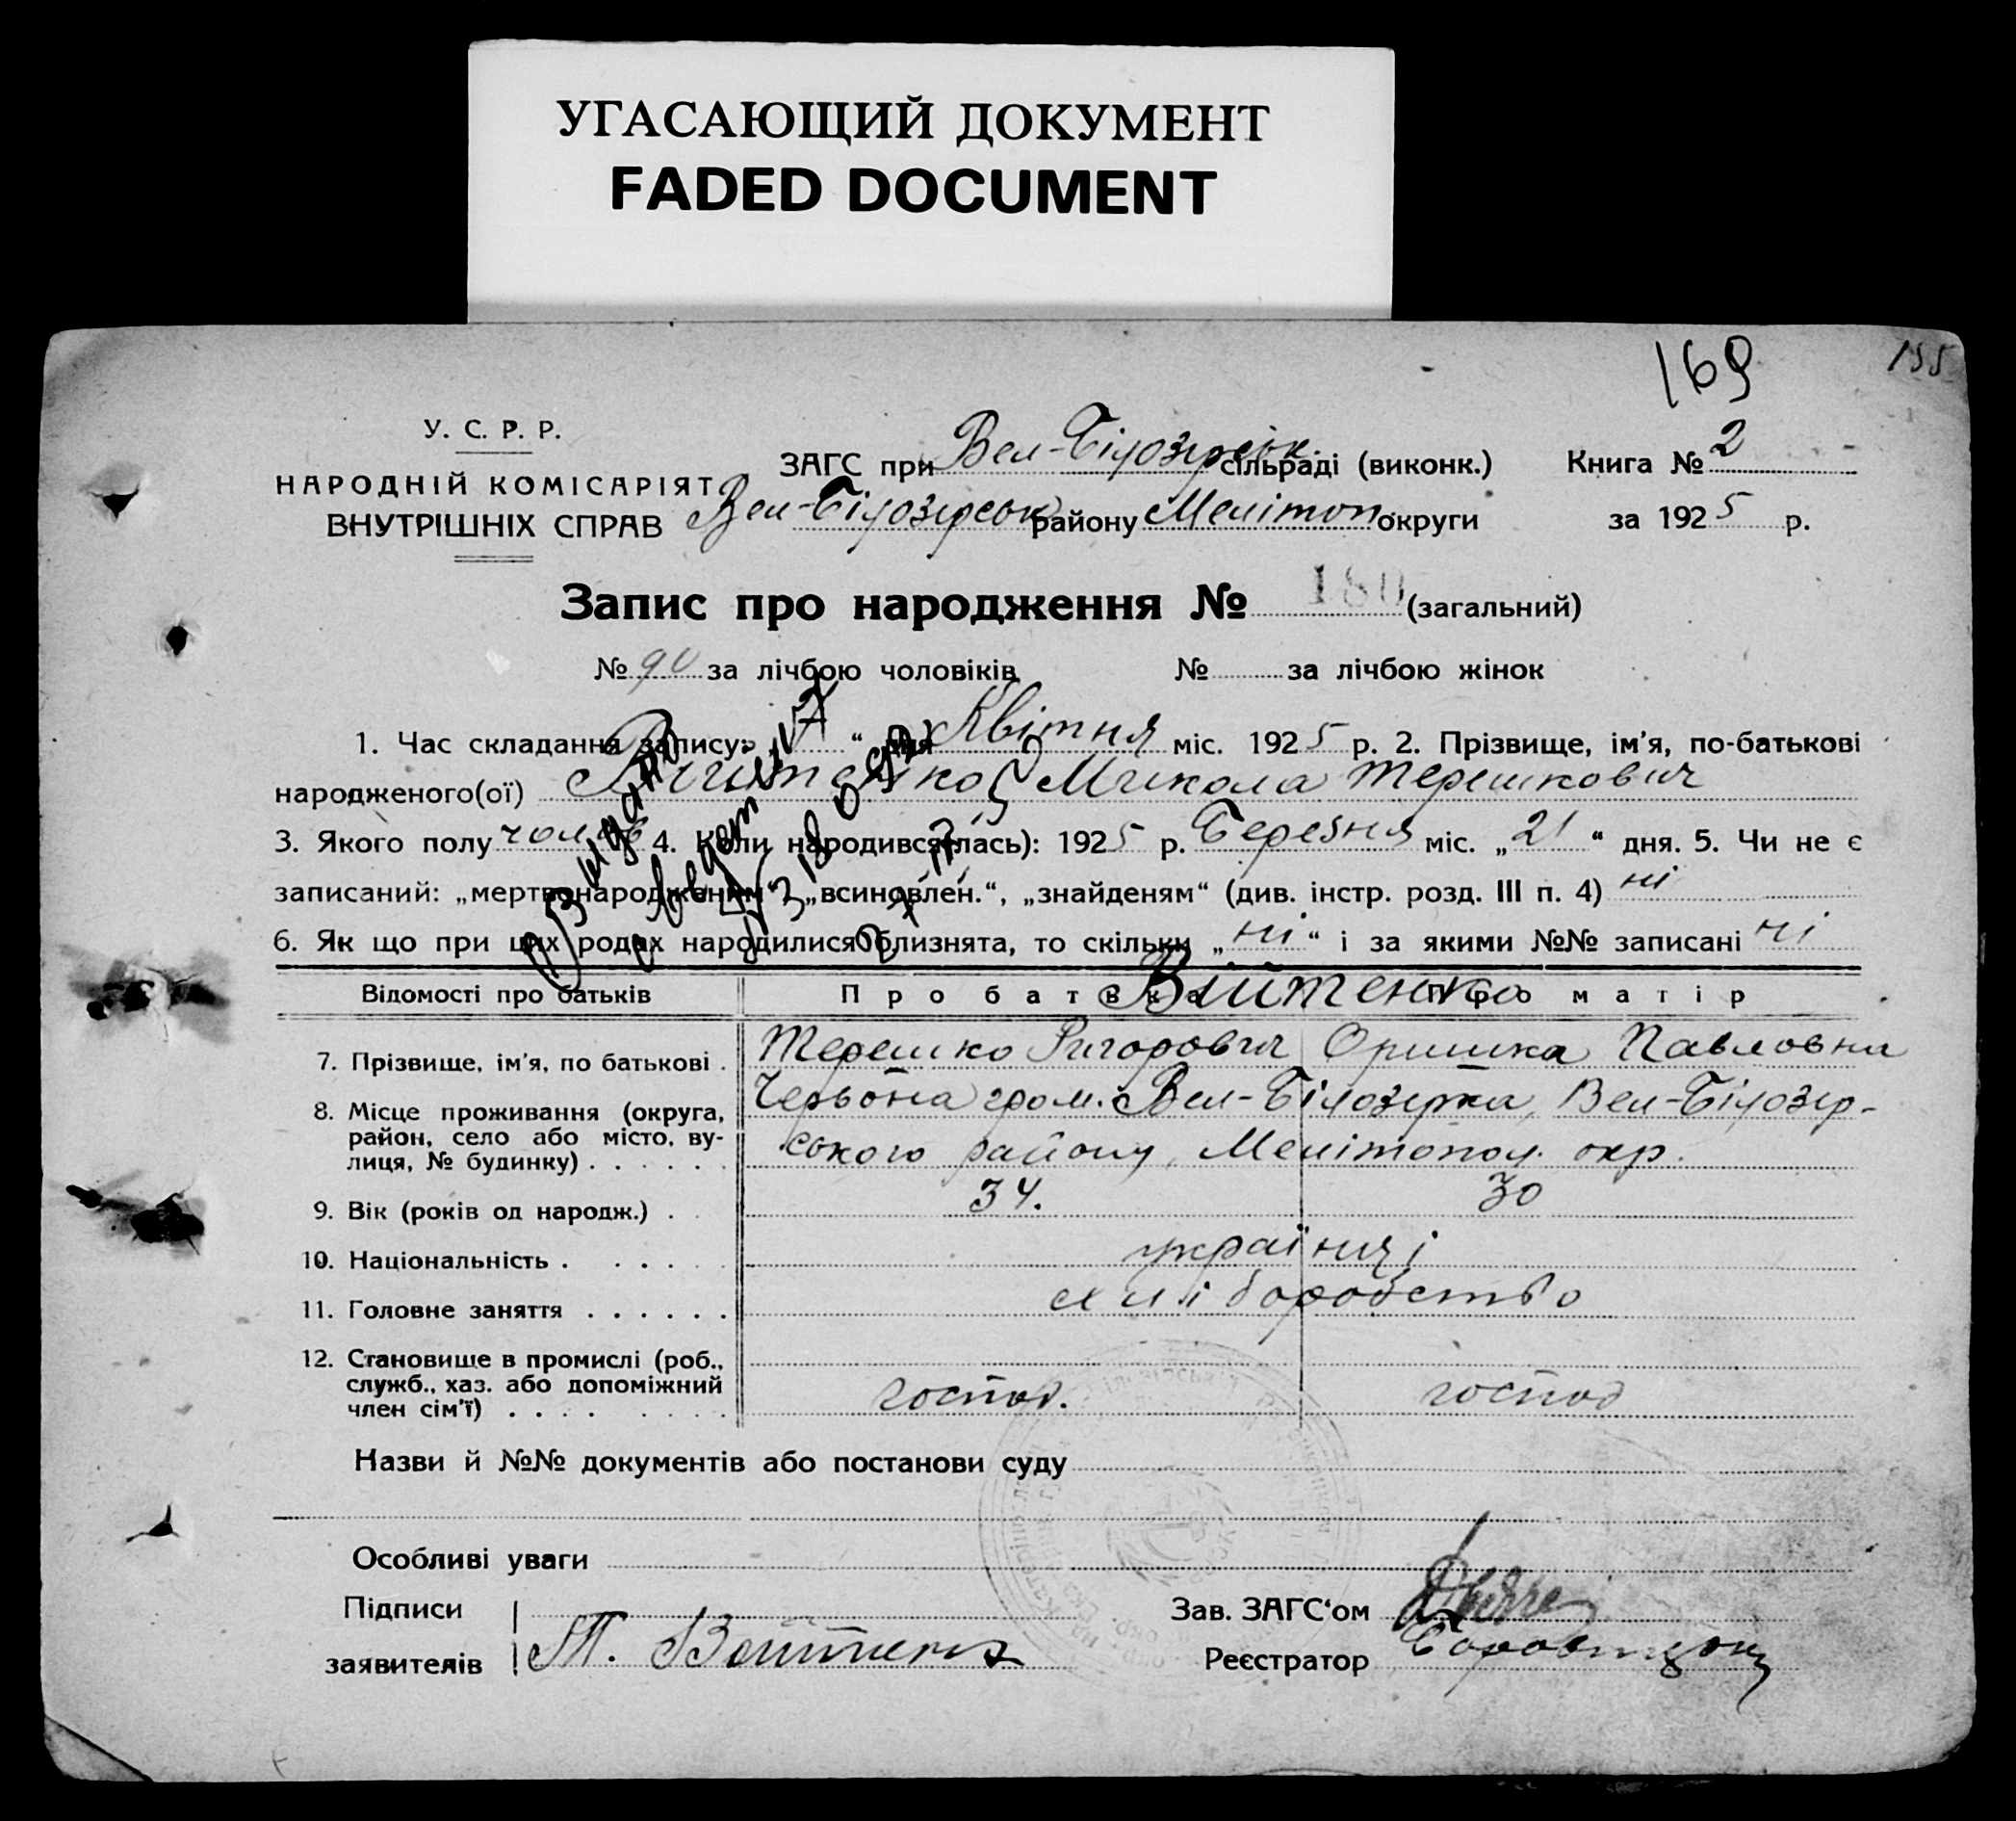 УГАСАЮЩИЙ ДОКУМЕНТ
FADED DOCUMENT
169
155
У. С. Р. Р.
НАРОДНІЙ КОМІСАРІЯТ
ВНУТРІШНІХ СПРАВ
ЗАГС при Вел-Білозерськ. сільраді (виконк.) Книга № 2
Вел-Білозерськ району Мелітоп. округи за 1925 р.
Запис про народження № 180 (загальний)
№ 90 за лічбою чоловіків № за лічбою жінок
1. Час складання запису: „7“ дня Квітня міс. 1925 р. 2. Прізвище, ім'я, по-батькові
народженого(ої) Вийтенко Микола Терешкович
3. Якого полу чолов 4. Коли народився(лась): 1925 р. Березня міс. „21“ дня. 5. Чи не є
записаний: „мертвонародженим“, „всиновлен.“, „знайденям“ (див. інстр. розд. III п. 4) ні
6. Як що при цих родах народилися близнята, то скільки „ні“ і за якими №№ записані ні
Відомості про батьків Про батька Про матір
Вийтенко
7. Прізвище, ім'я, по батькові . Терешко Ригорович Оришка Павловна
8. Місце проживання (округа, Червона гром. Вел-Білозерка, Вел-Білозер-
район, село або місто, ву- ського району, Мелітопол. окр.
лиця, № будинку) . . . . . .
9. Вік (років од народж.) . 34. 30
10. Національність . . . . . українці
11. Головне заняття . . . . . . хліборобство
12. Становище в промислі (роб.,
служб., хаз. або допоміжний господ. господ
член сім'ї) . . . .
Назви й №№ документів або постанови суду
Особливі уваги
Підписи Зав. ЗАГС'ом
заявителів Т. Войтенко Реєстратор